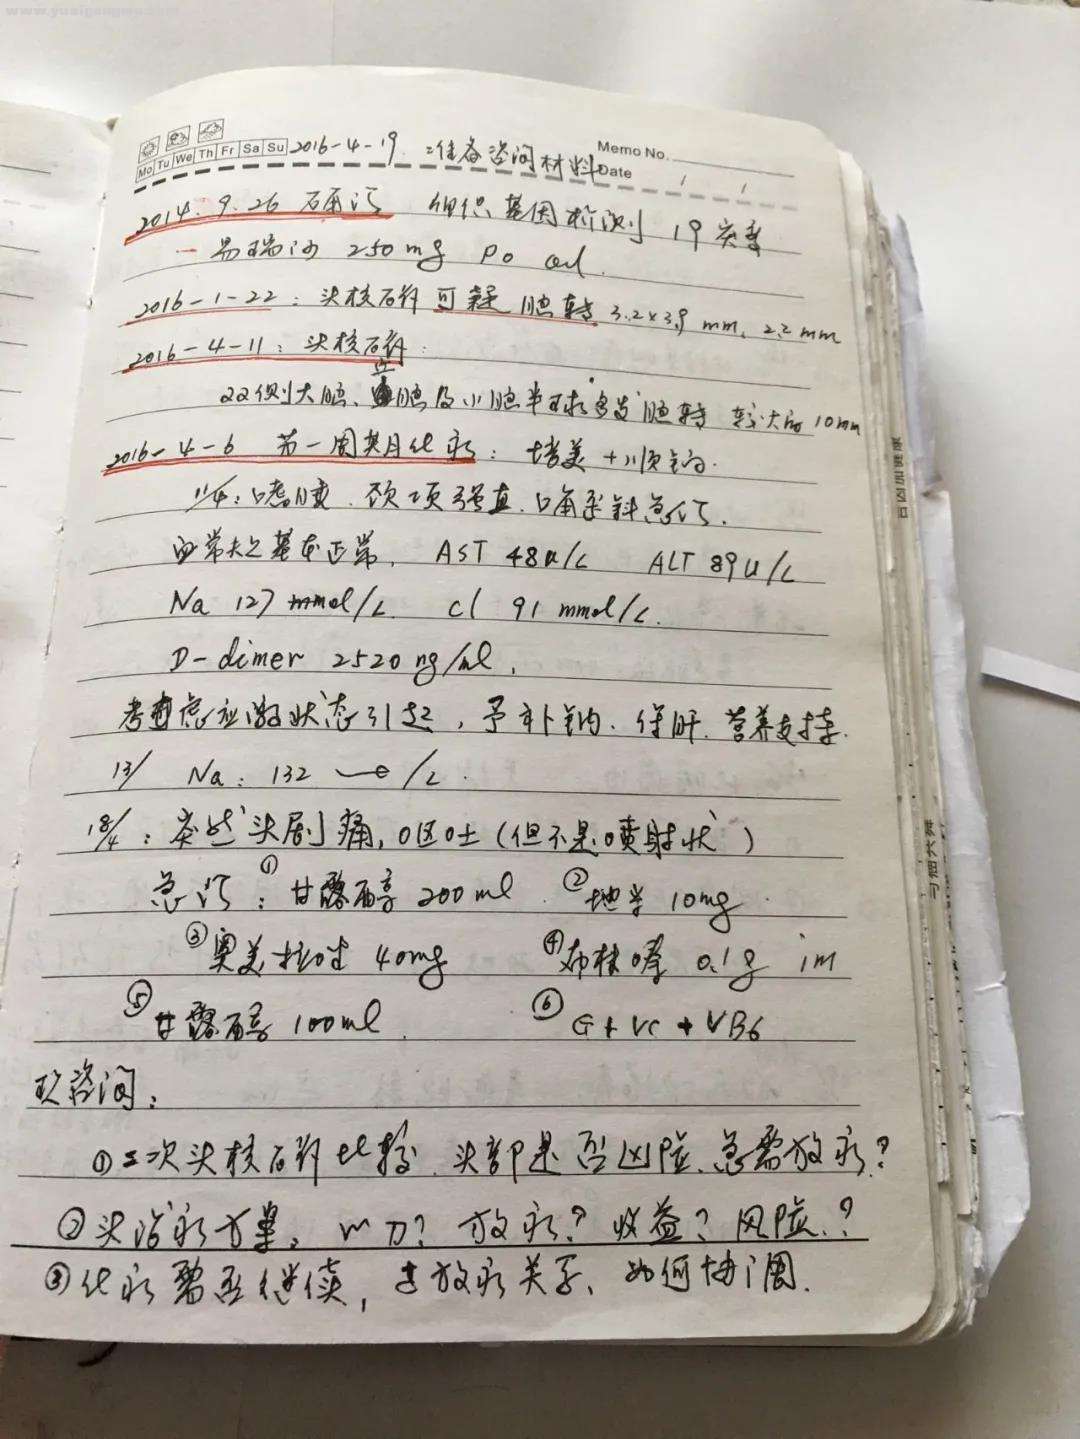 Mo Tu We Th Fr Sa Su 2016-4-19. 准备咨询材料 Memo No.
Date / /
2014.9.26 确诊 组织基因检测 19突变
— 易瑞沙 250mg po qd.
2016-1-22: 头核磁 可疑 脑转 3.2×3.9 mm, 2.2mm
2016-4-11: 头核磁:
双侧大脑、脑及小脑半球多发脑转 较大的10mm
2016-4-6 第一周期化疗: 培美+顺铂.
11/4: 嗜睡. 颈项强直. 口角歪斜急诊.
血常规基本正常. AST 48u/L ALT 89u/L
Na 127 mmol/L cl 91 mmol/L.
D-dimer 2520ng/ml.
考虑应激状态引起, 予补钠. 保肝. 营养支持.
13/ Na: 132 /L.
18/4: 突然头剧痛, 呕吐(但不是喷射状)
急诊: ①甘露醇 200ml ②地米 10mg
③奥美拉唑 40mg ④布桂嗪 0.1g im
⑤甘露醇 100ml. ⑥G+VC+VB6
咨询:
①二次头核磁比较. 头部是否凶险. 急需放疗?
②头治疗方案. 放疗? 收益? 风险?
③化疗是否继续, 与放疗关系, 如何协调.